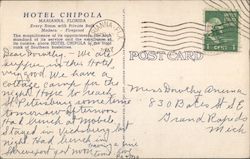 HOTEL CHIPOLA
MARIANNA, FLORIDA
Every Room with Private Bath
Modern - Fireproof
The magnificence of its appointments, the high
standard of its service and the excellence of
its cuisine, place HOTEL CHIPOLA in the front
rank of Southern hostelries.
Dear Dorothy - We ate
supper in this Hotel
very good. We have a
cottage camp for the
night. Hope to reach
St Petersburg some time
tomorrow afternoon
Had lunch at Mobile
Stayed in Vicksburg last
night Had lunch in
Shreveport
having a fine
POST CARD
1 CENT 1
Miss Dorothy
830 Bates St SE
Grand Rapids
Mich